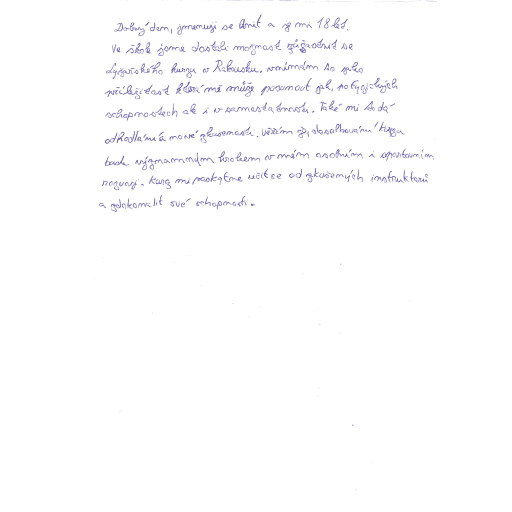 Dobrý den, jmenuji se a je mi 18 let.
Ve škole jsme dostali možnost zúčastnit se
Lyžařského kurzu v Rakousku, vnímám to jako
příležitost která mě může posunout jak, po fyzických
schopnostech ale i v samostatnosti. Také mi to dá
odhodlání a nové zkušenosti. Věřím, že, absolvování kurzu
bude významným krokem v mém osobním i sportovním
rozvoji. Kurz mi poskytne učit se od zkušených instruktorů
a zdokonalit své schopnosti.